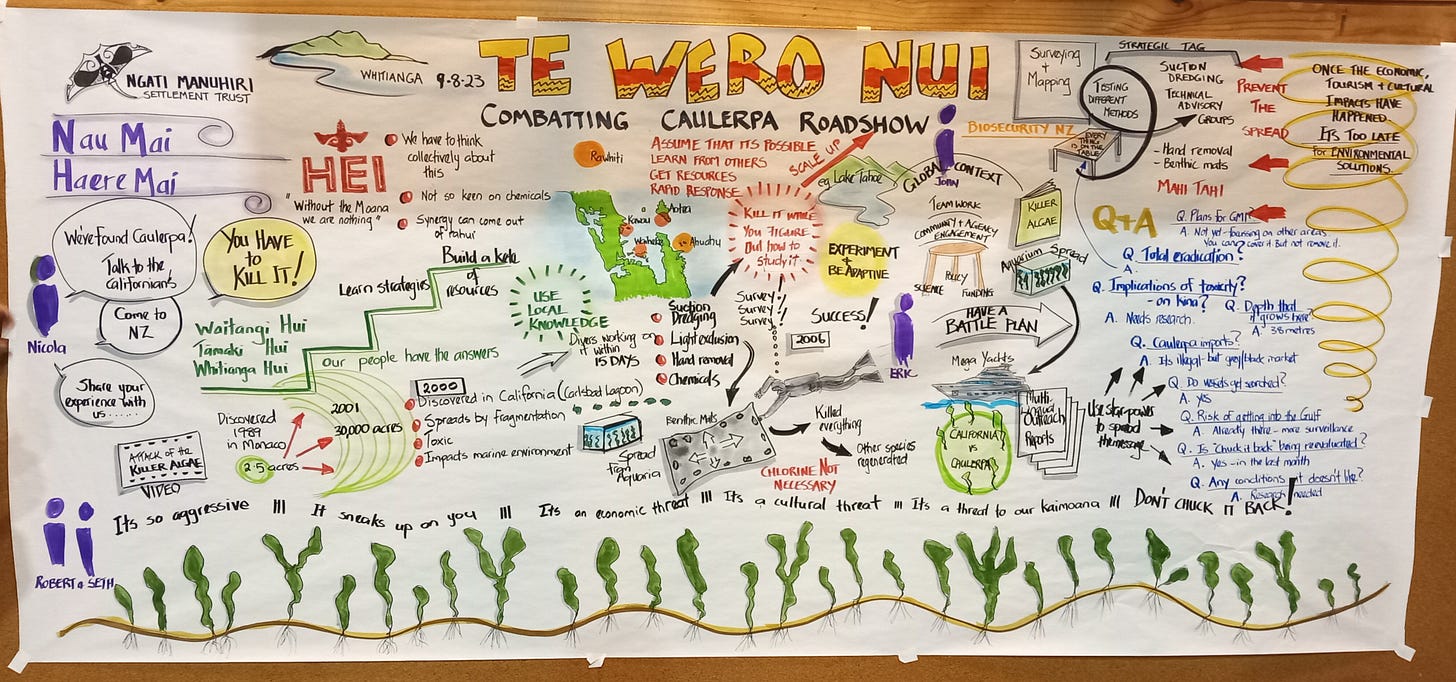 NGATI MANUHIRI
SETTLEMENT TRUST
WHITIANGA
9-8-23
TE WERO NUI
COMBATTING CAULERPA ROADSHOW
Nau Mai
Haere Mai
HEI
"Without the Moana
we are nothing"
We have to think
collectively about
this
Not so keen on chemicals
Synergy can come out
of
We've found Caulerpa!
Talk to the
Californians
You HAVE
to
KILL IT!
Come to
NZ
Nicola
Share your
experience with
us......
Waitangi Hui
Tamaki Hui
Whitianga Hui
Learn strategies
Build a kete
of
resources
our people have the answers
USE
LOCAL
KNOWLEDGE
Rawhiti
Kawau
Aotea
Waiheke
Ahuahu
ASSUME THAT ITS POSSIBLE
LEARN FROM OTHERS
GET RESOURCES
RAPID RESPONSE
SCALE UP
KILL IT WHILE
YOU FIGURE
OUT how to
study it
eg. Lake Tahoe
EXPERIMENT
+
BE ADAPTIVE
JOHN
GLOBAL CONTEXT
TEAM WORK
COMMUNITY + AGENCY
ENGAGEMENT
SCIENCE
POLICY
FUNDING
KILLER
ALGAE
Aquarium Spread
HAVE A
BATTLE PLAN
Surveying
+
Mapping
BIOSECURITY NZ
STRATEGIC TAG
TESTING
DIFFERENT
METHODS
EVERY
THING
IS ON THE
TABLE
SUCTION
DREDGING
TECHNICAL
ADVISORY
GROUPS
- Hand removal
- Benthic mats
MAHI TAHI
PREVENT
THE
SPREAD
ONCE THE ECONOMIC,
TOURISM + CULTURAL
IMPACTS HAVE
HAPPENED.
IT'S TOO LATE
for ENVIRONMENTAL
SOLUTIONS.
Q+A
Q. Plans for GMP?
A. Not yet - focusing on other areas
You can cover it. But not remove it.
Q. Total eradication?
A.
Q. Implications of toxicity?
- on kina?
A. Needs research.
Q. Depth that
it grows here?
A. 38 metres
Q. Caulerpa imports?
A. Its illegal - but grey/black market
Q. Do vessels get searched?
A. Yes
Q. Risk of getting into the Gulf
A. Already there - more surveillance
Q. Is "Chuck it back" being reevaluated?
A. Yes - in the last month
Q. Any conditions it doesn't like?
A. Research needed
Divers working on
it within
15 DAYS
Suction
Dredging
Light exclusion
Hand removal
Chemicals
Survey!
Survey!
Survey!
SUCCESS!
2006
ERIC
Mega Yachts
CALIFORNIA
VS
CAULERPA
Multi-
Lingual
Outreach
Reports
Use star power
to spread
the message
Discovered
1989
in Monaco
2.5 acres
2001
30,000 acres
2000
Discovered in California (Carlsbad Lagoon)
Spreads by fragmentation
Toxic
Impacts marine environment
Spread
From
Aquaria
Benthic Mats
Killed
everything
Other species
regenerated
CHLORINE NOT
NECESSARY
ATTACK OF the
KILLER ALGAE
VIDEO
ROBERT & SETH
It's so aggressive !!! It sneaks up on you !!! Its an economic threat !!! It's a cultural threat !!! It's a threat to our kaimoana !!! DON'T CHUCK IT BACK!